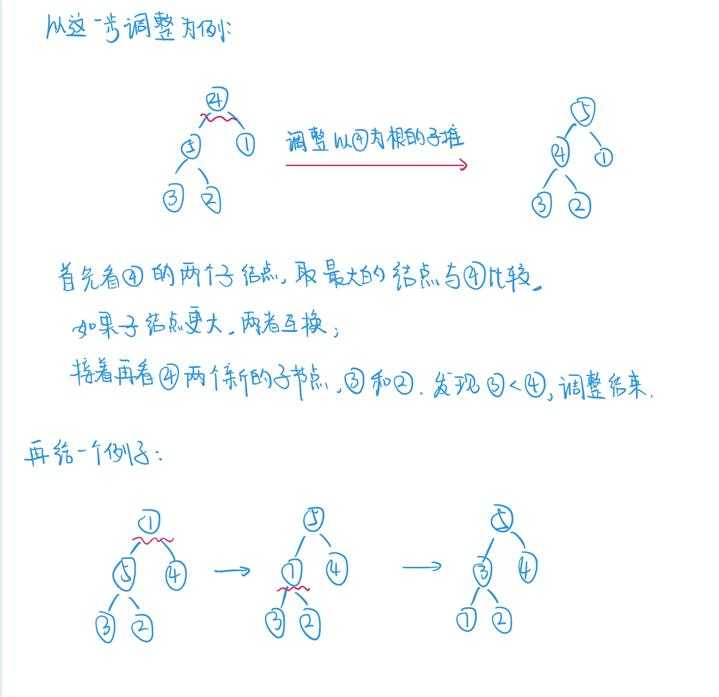 以这一步调整为例:
④
⑤ ①
③ ②
调整以④为根的子堆
⑤
④ ①
③ ②
首先看④的两个子结点,取最大的结点与④比较。
如果子结点更大,两者互换;
接着再看④两个新的子节点,③和②.发现③<④,调整结束.
再给一个例子:
①
⑤ ④
③ ②
⑤
① ④
③ ②
⑤
③ ④
① ②